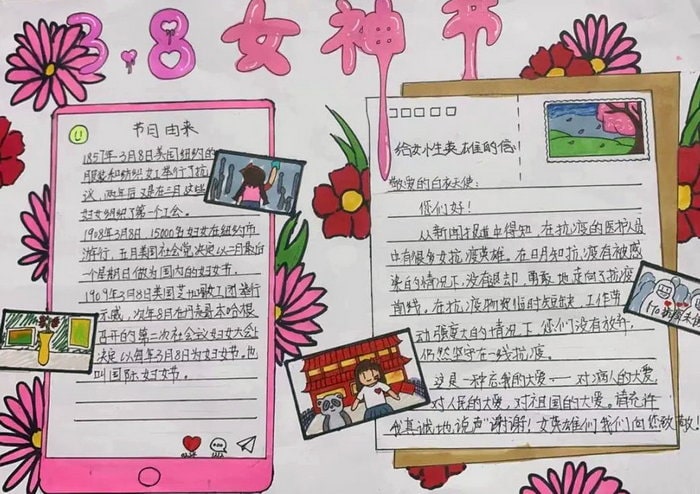 3.8女神节
节日由来
1857年3月8日美国纽约的
服装和纺织女工举行了抗
议,两年后又是在三月这些
妇女组织了第一个工会。
1908年3月8日,15000名妇女在纽约市
游行,五月美国社会党决定以二月最后
一个星期日做为国内的妇女节。
1909年3月8日美国芝加哥女工团举行
示威,次年8日在丹麦哥本哈根
召开的第二次社会议妇女大会上
决定以每年3月8日为妇女节,也
叫国际妇女节。
给女性英雄的信
敬爱的白衣天使:
你们好!
从新闻报道中得知,在抗疫的医护人员
中有很多女抗疫英雄。在明知抗疫有被感
染的情况下,没有退却,勇敢地走向抗疫
前线。在抗疫物资临时短缺,工作劳
动强度大的情况下你们没有放弃,
仍然坚守在一线抗疫。
这是一种忘我的大爱——对病人的大爱
对人民的大爱,对祖国的大爱。请允许
我真诚地说声"谢谢!女英雄们我们向您致敬!